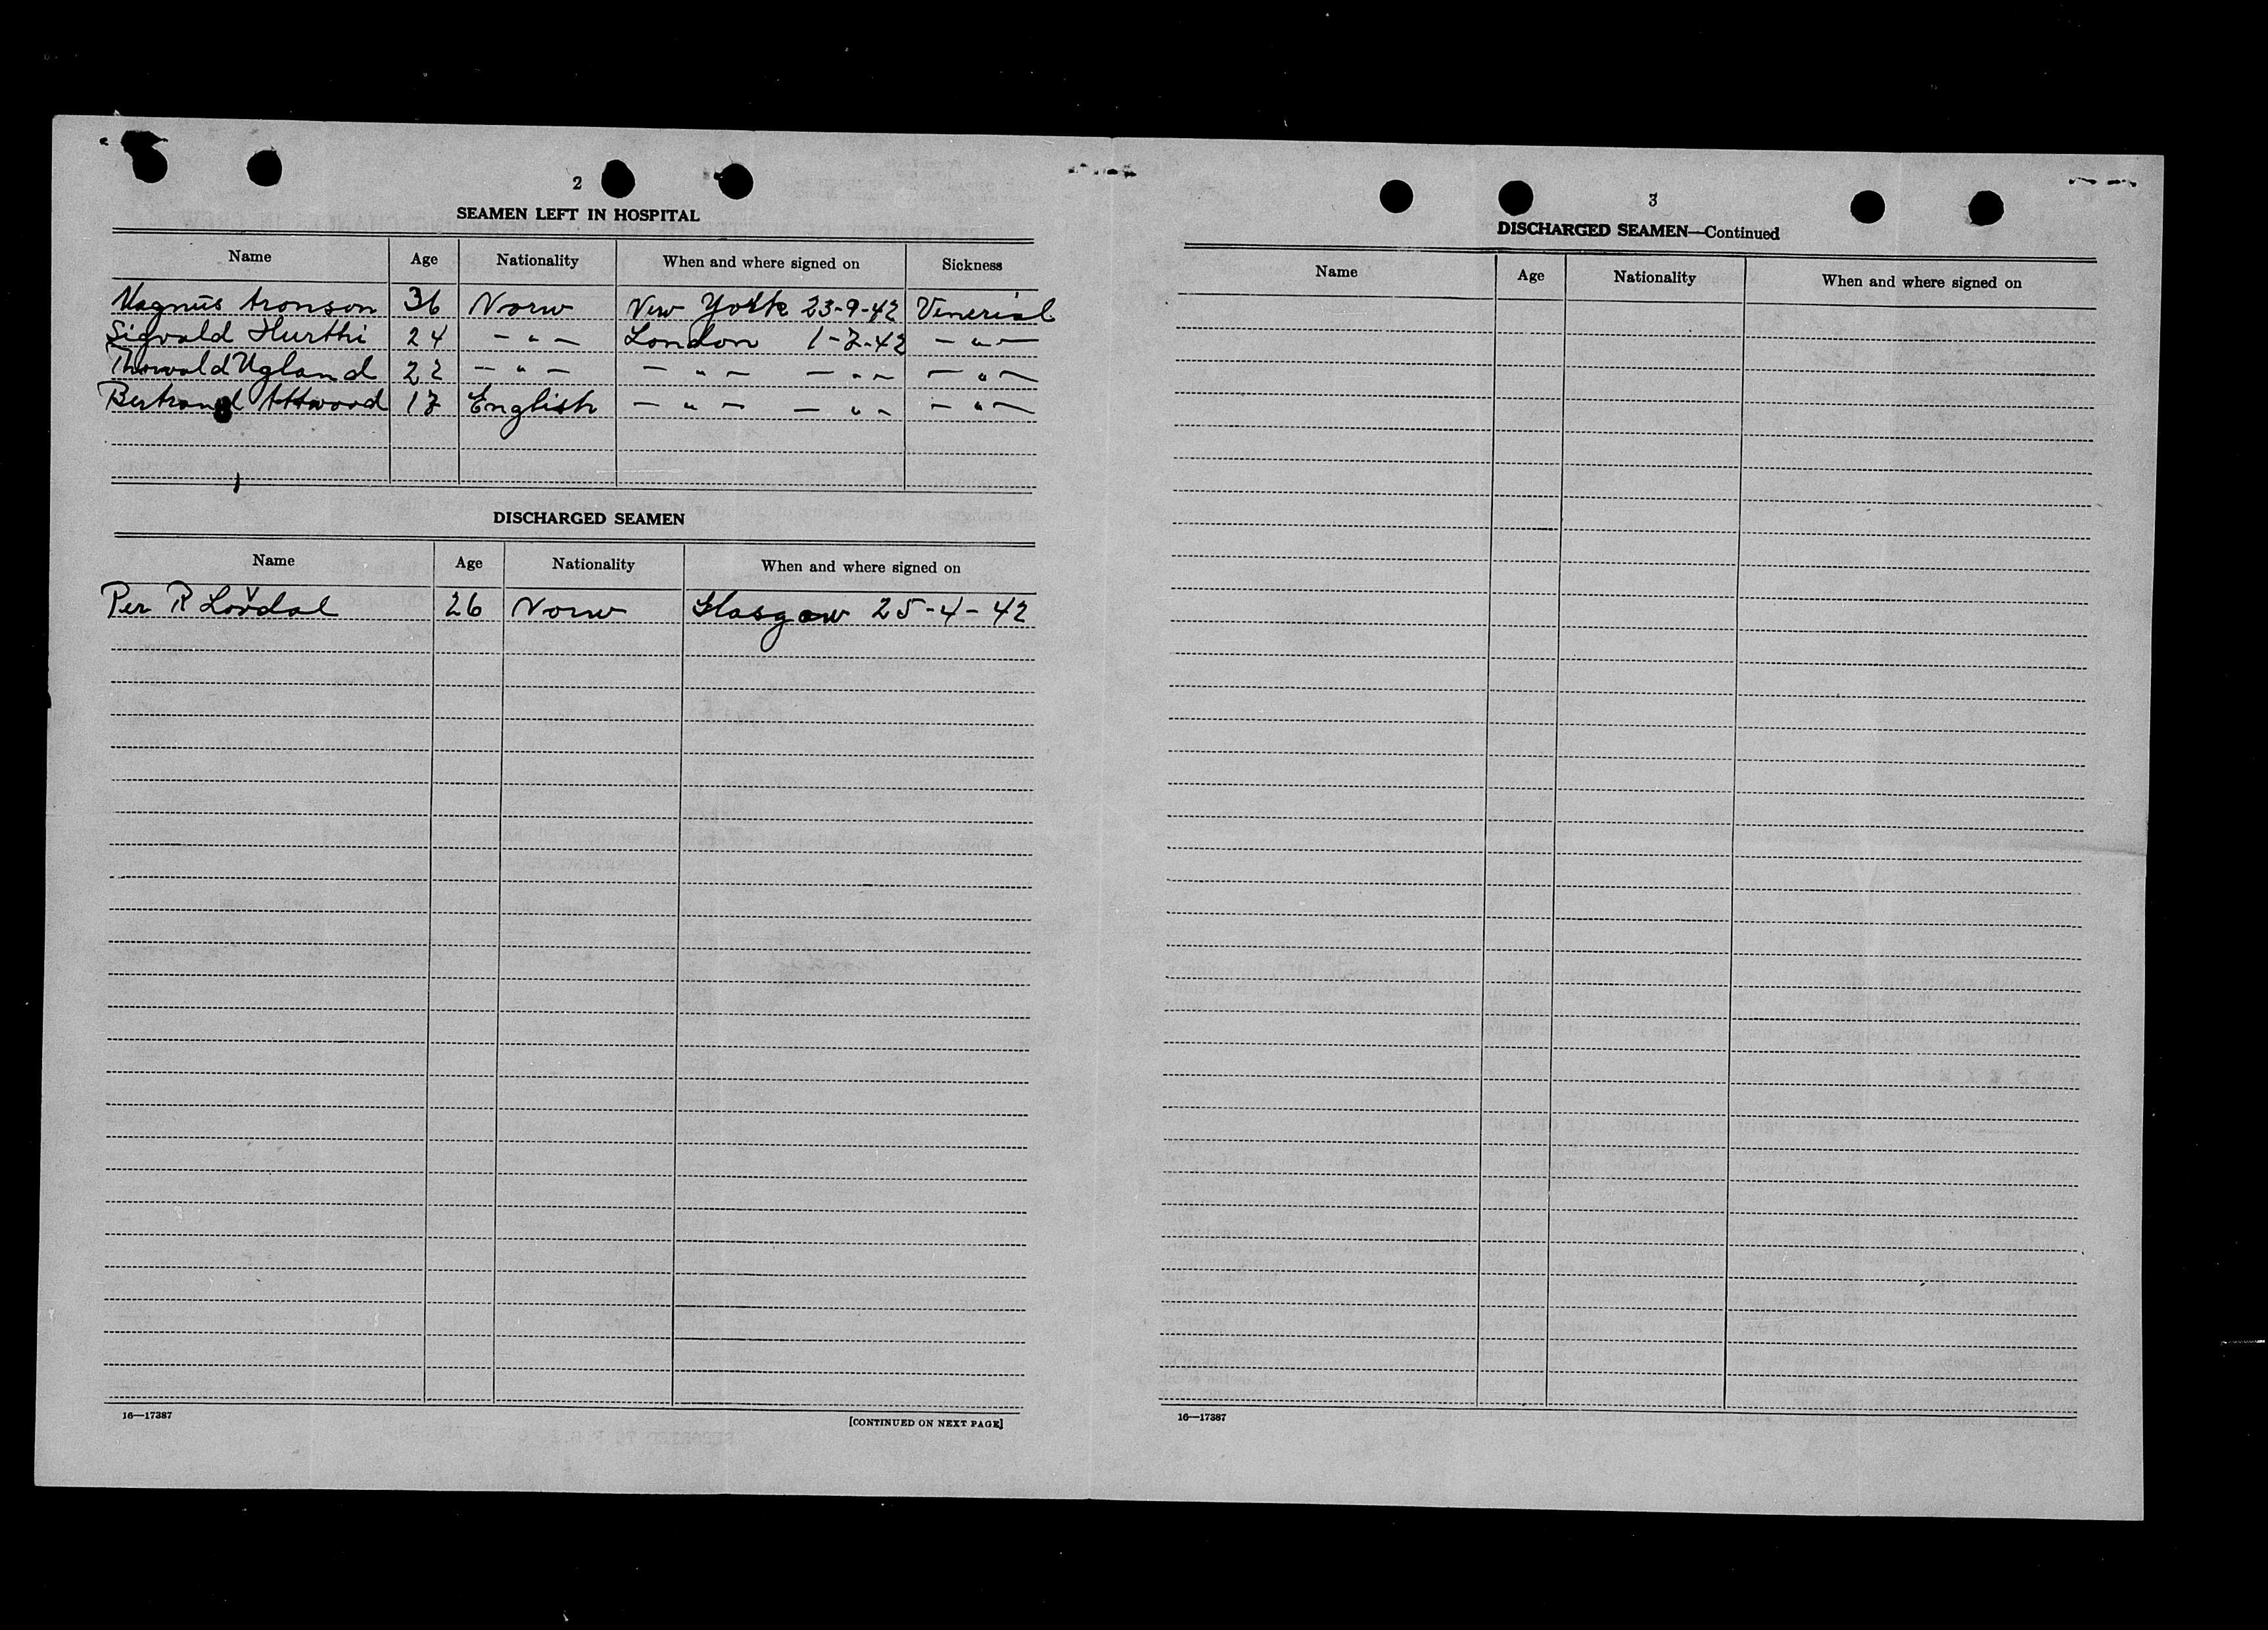 2
SEAMEN LEFT IN HOSPITAL
Name Age Nationality When and where signed on Sickness
Magnus Aronson 36 Norw New York 23-9-42 Venerial
Sigvald Hurthi 24 — " — London 1-2-42 — " —
Thorvald Ugland 22 — " — — " — — " — — " —
Bertrand Attwood 17 English — " — — " — — " —
DISCHARGED SEAMEN
Name Age Nationality When and where signed on
Per R Lovdal 26 Norw Glasgow 25-4-42
16—17387 [CONTINUED ON NEXT PAGE]
3
DISCHARGED SEAMEN—Continued
Name Age Nationality When and where signed on
16—17387